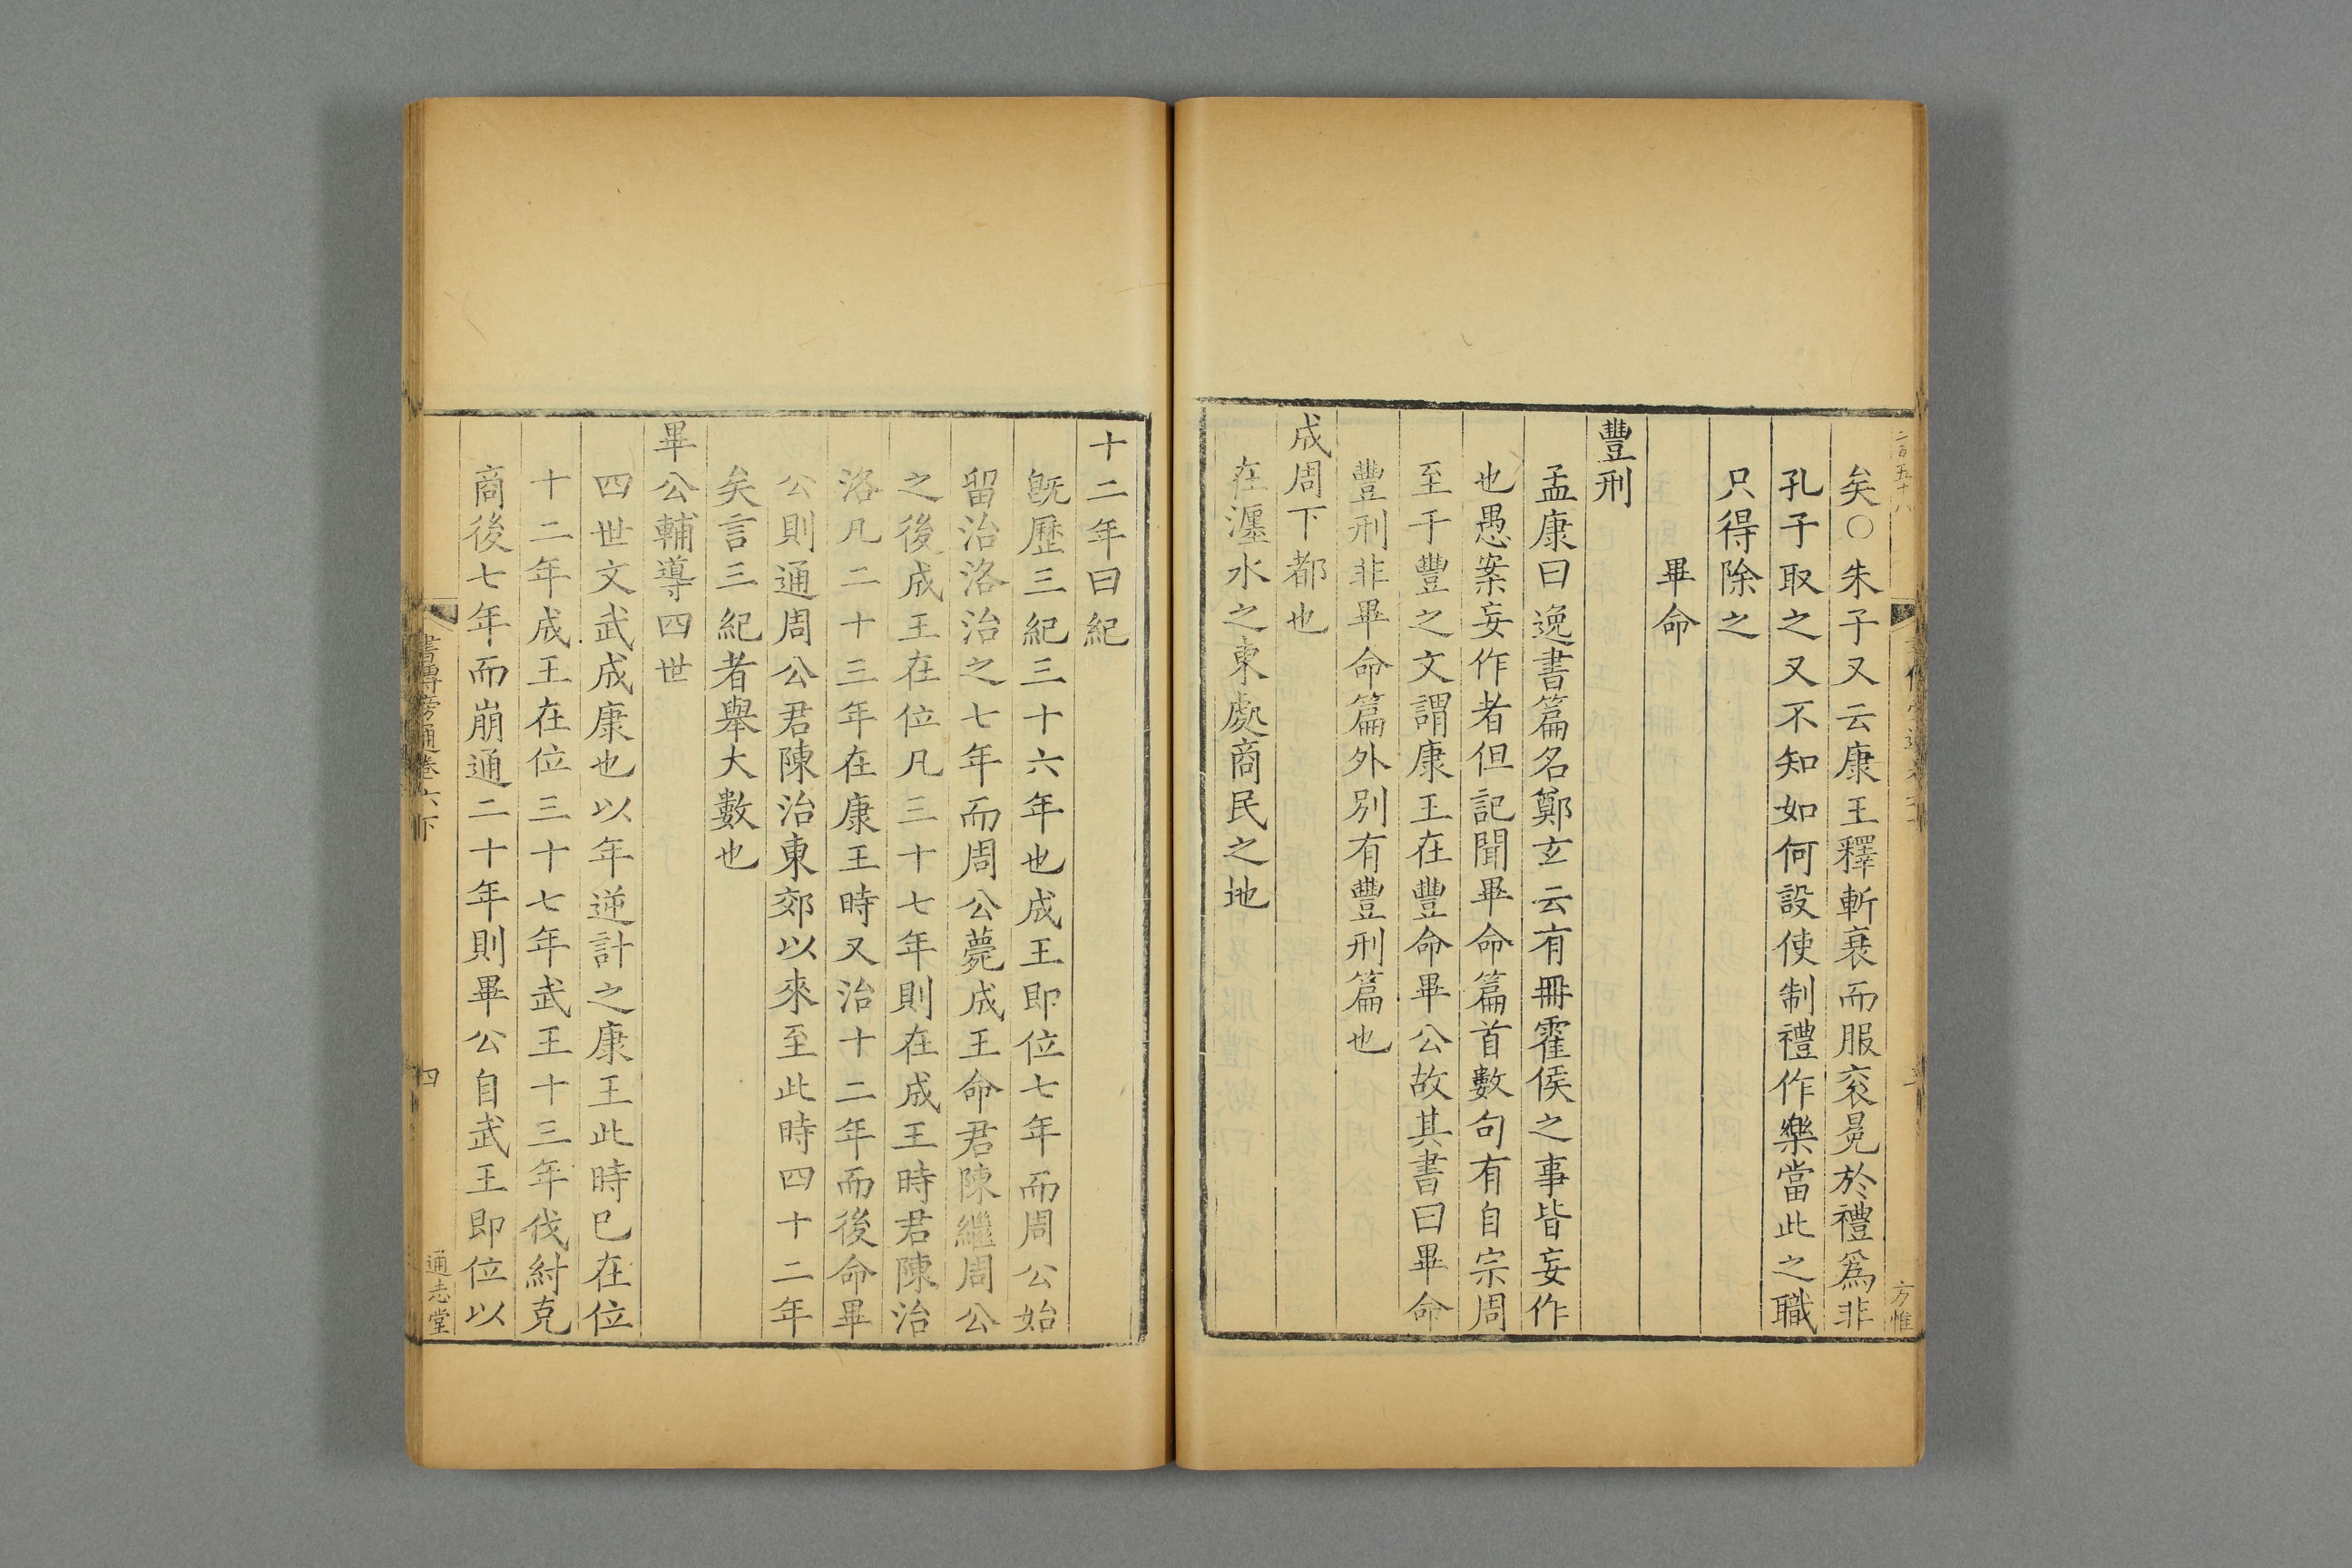 二百五十八
方惟
矣○朱子又云康王釋斬衰而服衮冕於禮爲非
孔子取之又不知如何設使制禮作樂當此之職
只得除之
畢命
豐刑
孟康曰逸書篇名鄭玄云有冊霍侯之事皆妄作
也愚案妄作者但記聞畢命篇首數句有自宗周
至于豐之文謂康王在豐命畢公故其書曰畢命
豐刑非畢命篇外別有豐刑篇也
成周下都也
在瀍水之東處商民之地
十二年曰紀
旣歷三紀三十六年也成王即位七年而周公始
留治洛治之七年而周公薨成王命君陳繼周公
之後成王在位凡三十七年則在成王時君陳治
洛凡二十三年在康王時又治十二年而後命畢
公則通周公君陳治東郊以來至此時四十二年
矣言三紀者舉大數也
畢公輔導四世
四世文武成康也以年逆計之康王此時已在位
十二年成王在位三十七年武王十三年伐紂克
商後七年而崩通二十年則畢公自武王即位以
書傳旁通卷六下
四
通志堂